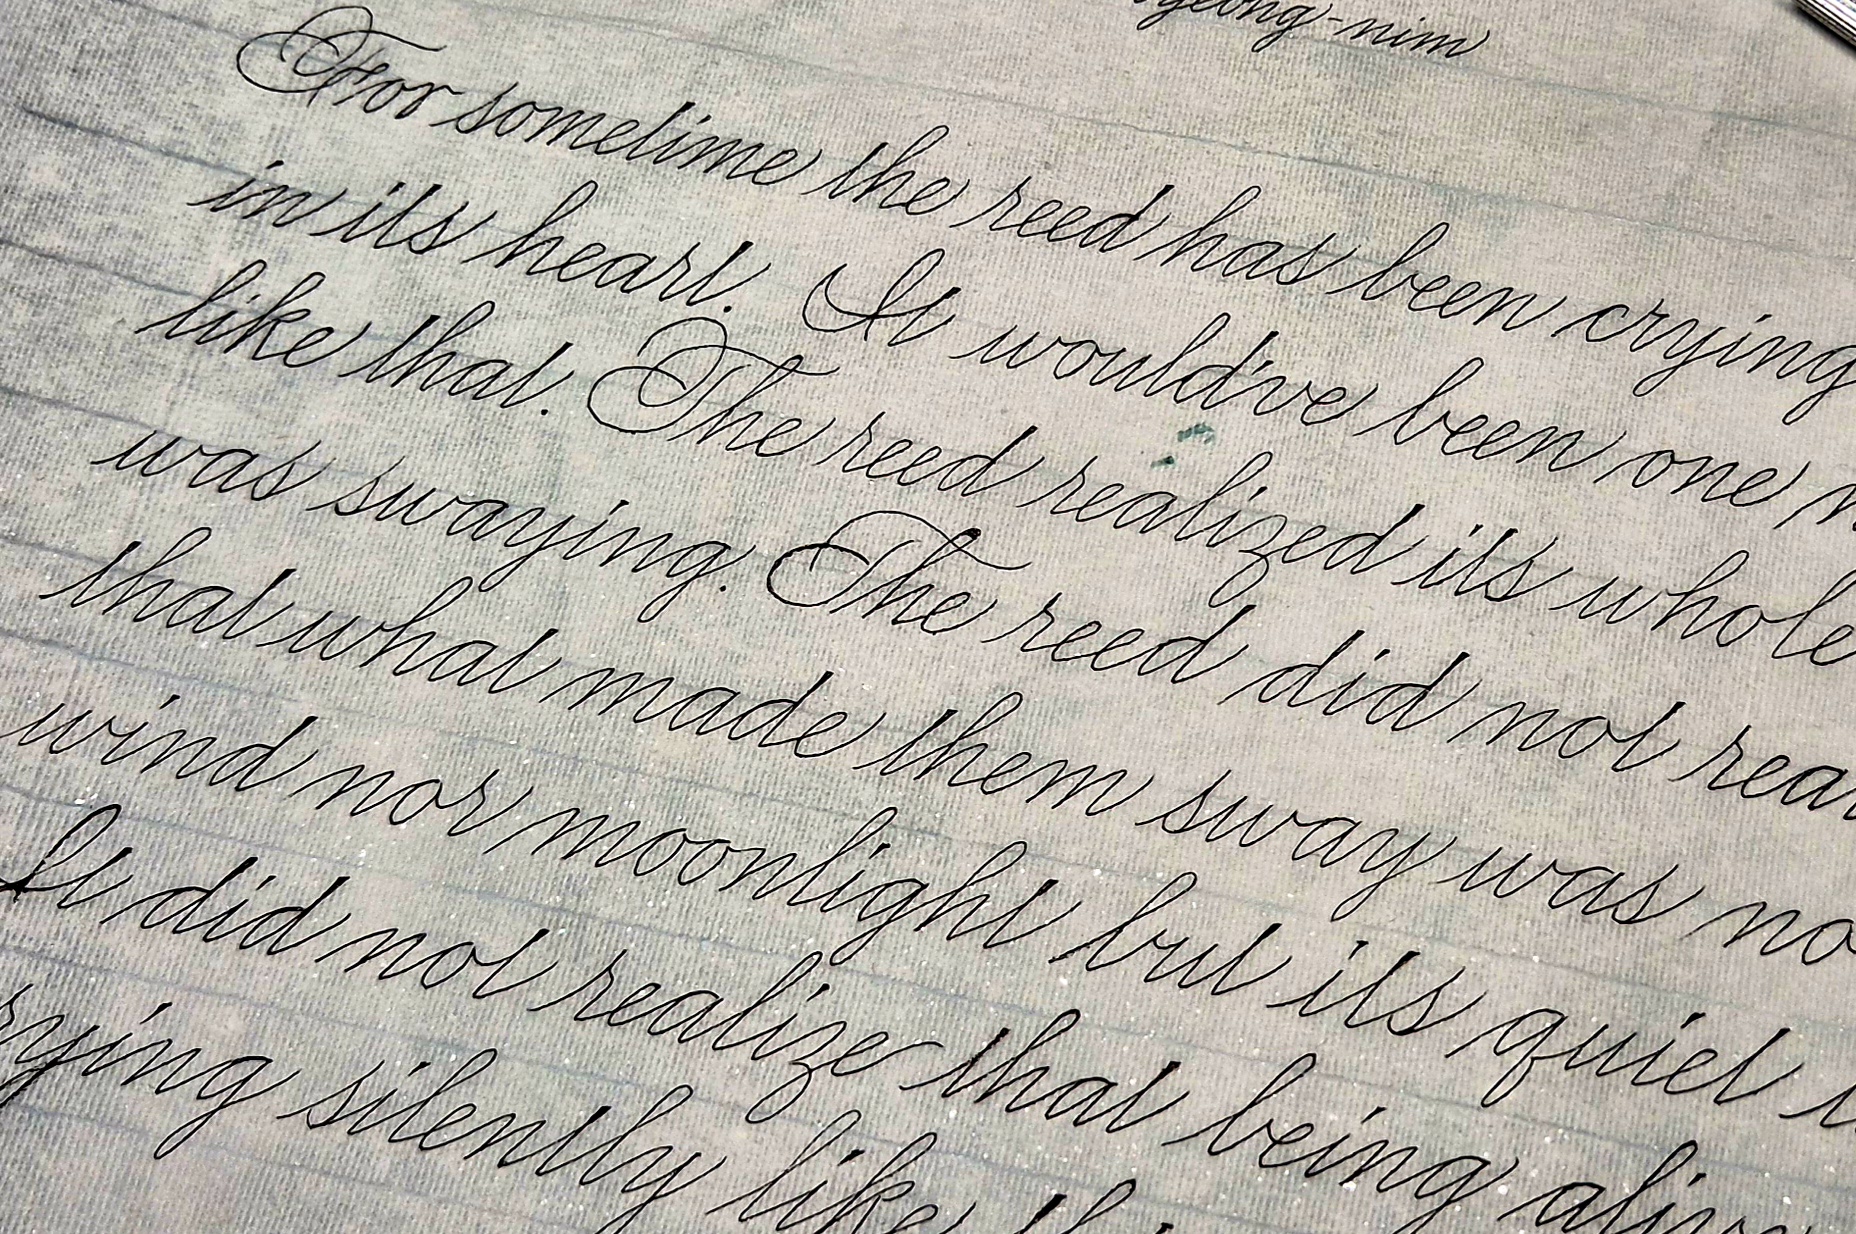 yeong-nim
For sometime the reed has been crying
in its heart. It would've been one
like that. The reed realized its whole
was swaying. The reed did not
that what made them sway was
wind nor moonlight but its quiet
It did not realize that being
silently like